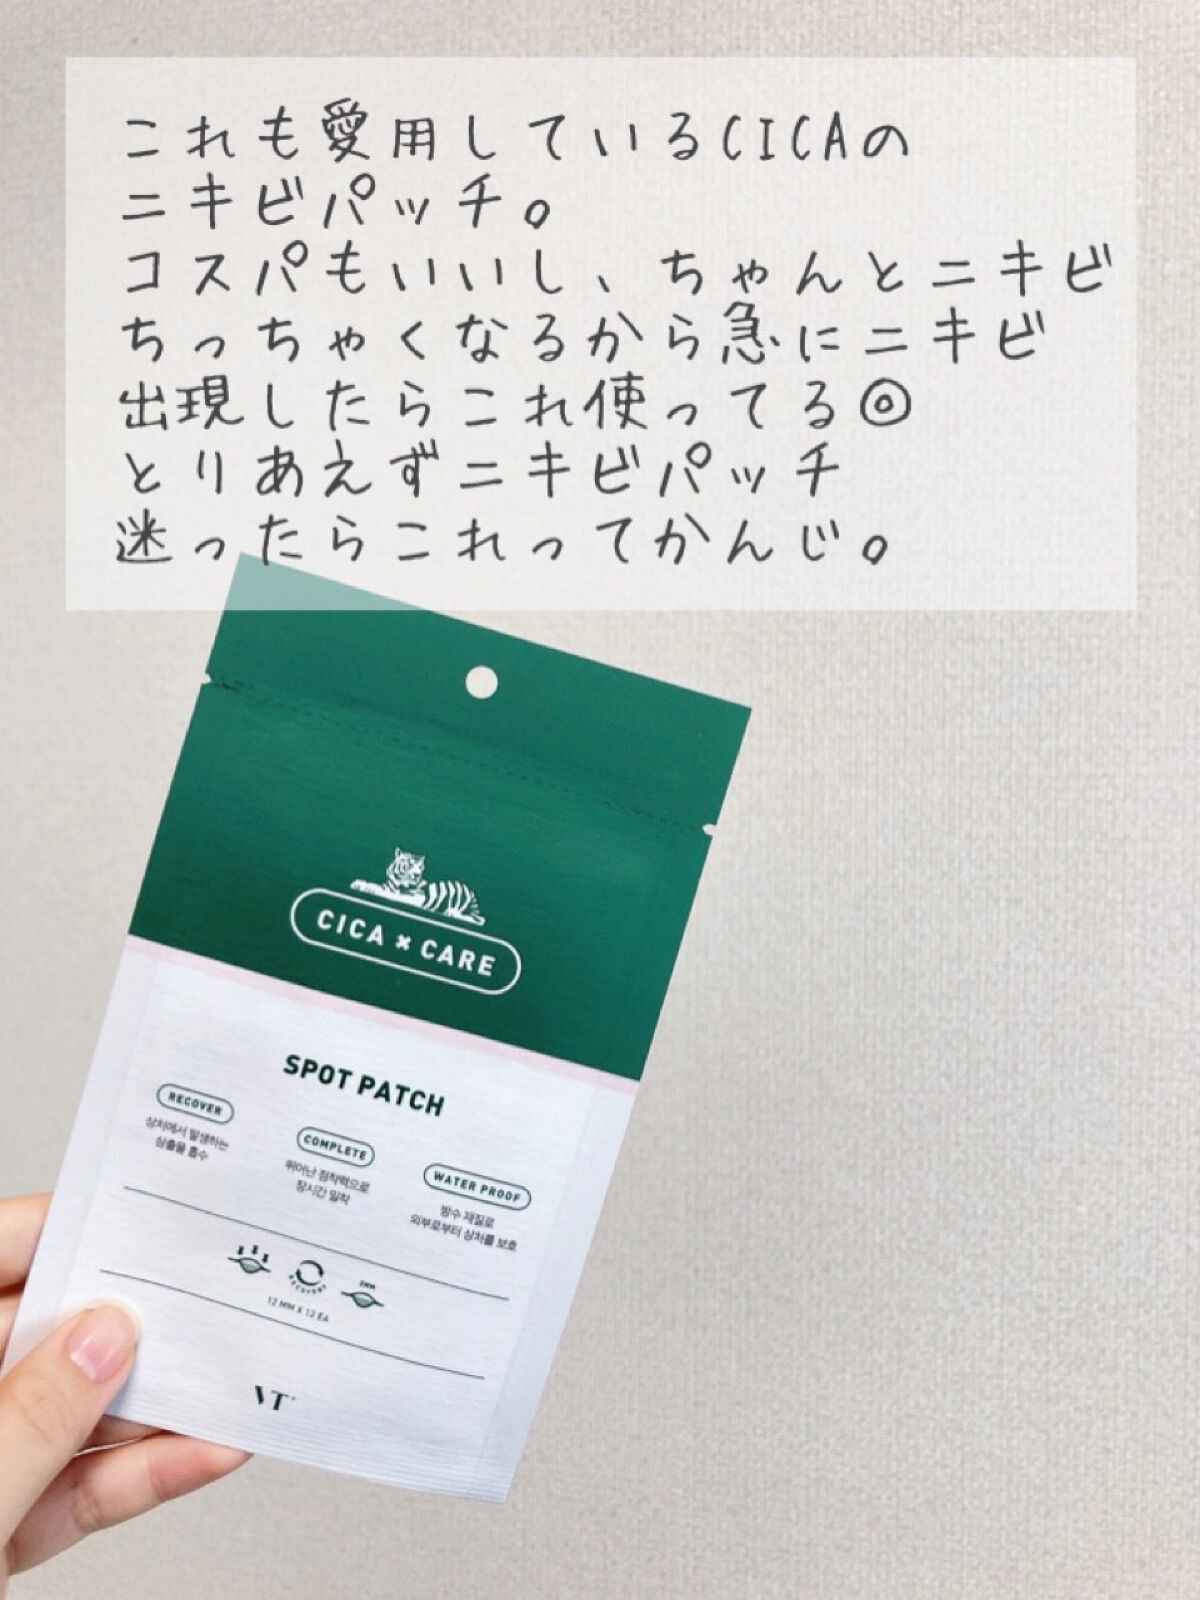 これも愛用しているCICAの
ニキビパッチ。
コスパもいいし、ちゃんとニキビ
ちっちゃくなるから急にニキビ
出現したらこれ使ってる◎
とりあえずニキビパッチ
迷ったらこれってかんじ。
CICA × CARE
SPOT PATCH
RECOVER
상처에서 발생하는
삼출물 흡수
COMPLETE
뛰어난 점착력으로
장시간 밀착
WATER PROOF
방수 재질로
외부로부터 상처를 보호
RECOVERY
2MM
12 MM X 12 EA
VT